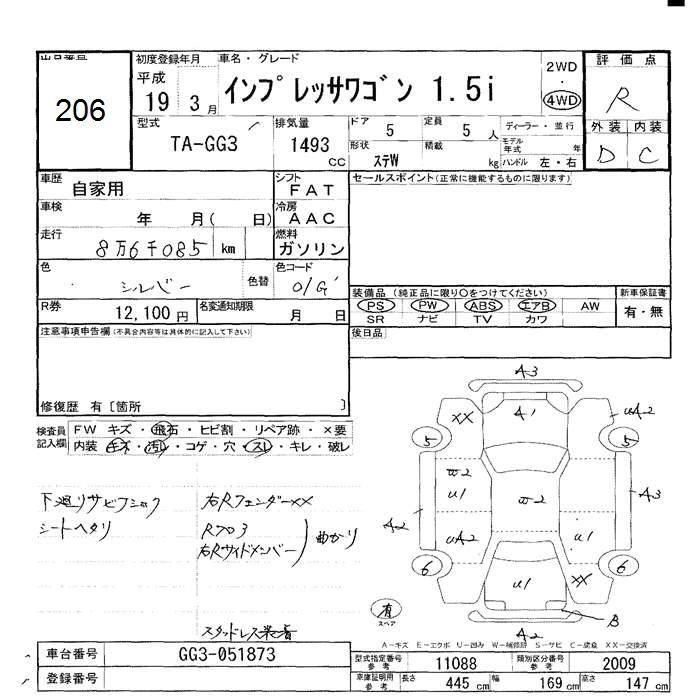 出品番号 初度登録年月 車名・グレード 2WD 評価点
206 平成 19 3月 インプレッサワゴン 1.5i ・ 4WD R
型式 TA-GG3 排気量 1493 CC ドア 5 定員 5 人 ディーラー・並行 外装 内装
形状 ステW 積載 kg モデル年式 年 ハンドル 左・右 D C
車歴 自家用 シフト FAT セールスポイント(正常に機能するものに限ります)
車検 年 月( 日) 冷房 AAC
走行 8万6千085 km 燃料 ガソリン
色 シルバー 色替 色コード 01G
装備品 (純正品に限り〇をつけてください) 新車保証書
R券 12,100円 名変通知期限 月 日 PS PW ABS エアB AW 有・無
SR ナビ TV カワ
注意事項申告欄(不具合内容等は具体的に記入して下さい) 後日品
修復歴 有 [箇所 ]
検査員記入欄 FW キズ・飛石・ヒビ割・リペア跡・×要
内装 キズ・汚れ・コゲ・穴・スレ・キレ・破レ
A3
XX A1 UA2
5 5
W2 U1 W2 A3
A2 UA2 U1
6 U1 XX 6
有 スペア B
A2
下廻りサビフショク 右RフェンダーXX
シートヘタリ Rフロア
右Rサイドメンバー 曲がり
スタッドレス装着
A-キズ E-エクボ U-凹み W-補修跡 S-サビ C-腐食 XX-交換済
車台番号 GG3-051873 型式指定番号 参考 11088 類別区分番号 参考 2009
登録番号 車庫証明用 参考 長さ 445 cm 幅 169 cm 高さ 147 cm